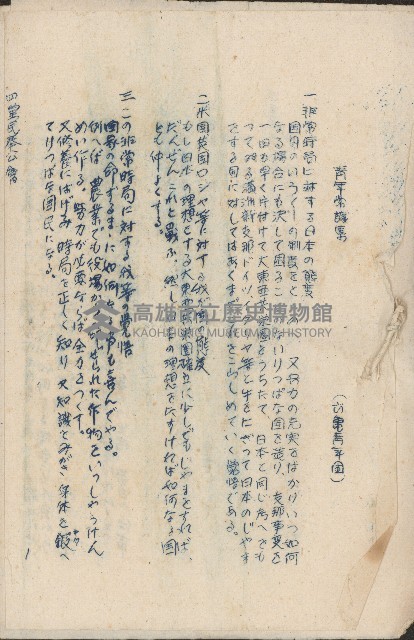 青年常識集
(六龜青年団)
一 非常時局に対する日本の態度
国内のいろいろの制度をと 又兵力の充実をはかりいつ如何
なる場合にも決して困ること ないりつぱな国を造り、支那事変を
一日も早く片付けて大東亜共栄圏をうちたて、日本と同じ考へをも
つて居る満洲、新支那、ドイツ、 や等と手をにぎつて日本のじやま
をする国に対してはあくまで これをこらしめていく覚悟である。
二 米国英国ロシヤ等に対する我が国の態度
もし日本の理想とする大東亜共栄圏確立に少しでもじやまをすれば、
だんぜんこれと戦ふ、然し日本の理想をたすければ如何なる国
とも仲よくする。
三 この非常時局に対する我等の覚悟
国家の命ずるまゝに如何なる事も喜んでやる。
例へば 農業でも役場から させられた作物をいつしやうけん
めい作る。努力が必要ならば全力をつくす。
又修養にはげみ 時局を正しく知り 又知識をみがき 身体を鍛へ
てりつぱな国民になる。
四 黨民奉公會
高雄市立歷史博物館
KAOHSIUNG MUSEUM OF HISTORY